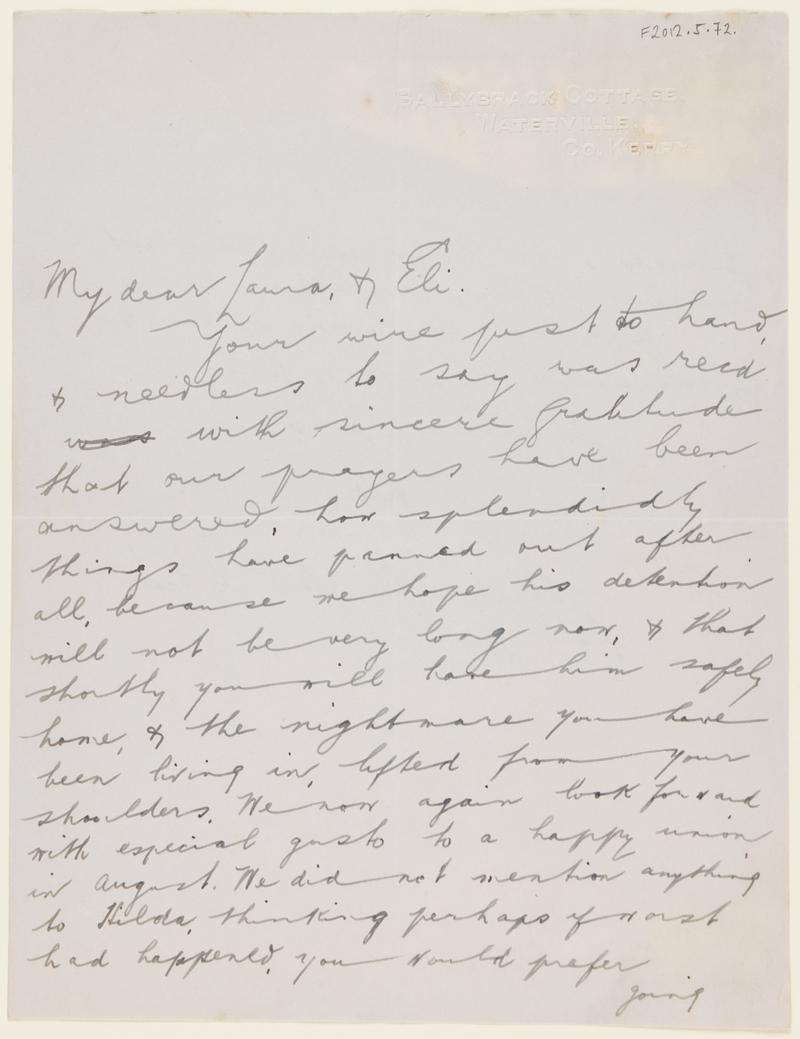 F2012.5.72.
BALLYBRACK COTTAGE
WATERVILLE.
CO. KERRY
My dear Laura, & Eli.
Your wire just to hand,
& needless to say was read
was with sincere gratitude
that our prayers have been
answered, how splendidly
things have panned out after
all, because we hope his detention
will not be very long now, & that
shortly you will have him safely
home, & the nightmare you have
been living in, lifted from your
shoulders. We now again look forward
with especial gusto to a happy union
in August. We did not mention anything
to Hilda, thinking perhaps if worst
had happened, you would prefer
going